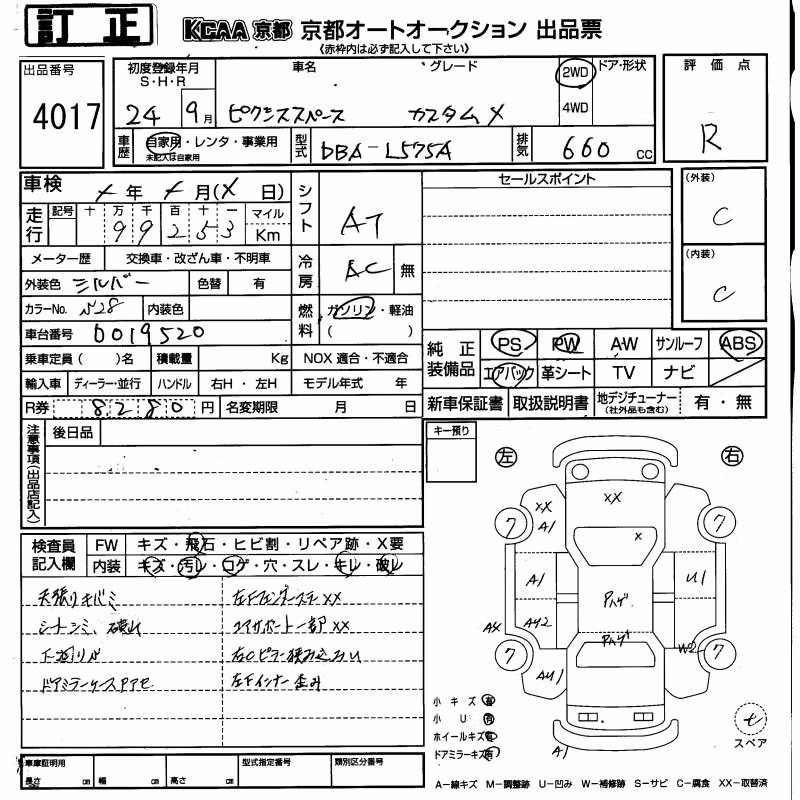 訂正
KCAA 京都 京都オートオークション 出品票
《赤枠内は必ず記入して下さい》
出品番号
4017
初度登録年月 S・H・R
24 9月
車名
ピクシススペース
グレード
カスタムX
2WD
4WD
ドア・形状
車歴 自家用・レンタ・事業用
未記入は自家用
型式 DBA-L575A
排気 660 cc
評価点
R
車検 メ年メ月(メ日)
走行 記号 十 万 千 百 十 一 マイル
99253 Km
メーター歴 交換車・改ざん車・不明車
外装色 シルバー 色替 有
カラーNo. S28 内装色
車台番号 0019520
乗車定員( )名 積載量 Kg NOX 適合・不適合
輸入車 ディーラー・並行 ハンドル 右H・左H モデル年式 年
R券 8280円 名変期限 月 日
シフト AT
冷房 AC 無
燃料 ガソリン・軽油
( )
セールスポイント
(外装)
C
(内装)
C
純正装備品 PS PW AW サンルーフ ABS
エアバック 革シート TV ナビ
新車保証書 取扱説明書 地デジチューナー(社外品も含む) 有・無
注意事項(出品店記入) 後日品
キー預り
左 右
検査員記入欄 FW キズ・飛石・ヒビ割・リペア跡・X要
内装 キズ・汚レ・コゲ・穴・スレ・キレ・破レ
天張りキバミ
シートシミ、破れ
下廻りサビ
左Fフェンダーステ XX
コアサポート一部 XX
左Fインナー歪み
XX XX
A1 X
7 7
A1 U1
Pハゲ
AY2
Pハゲ
AX W2
7 7
AU1
A1
小キズ 有
小U 有
ホイールキズ 有
ドアミラーキズ 有
t
スペア
車庫証明用 長さ cm 幅 cm 高さ cm 型式指定番号 類別区分番号
A−線キズ M−調整跡 U−凹み W−補修跡 S−サビ C−腐食 XX−取替済